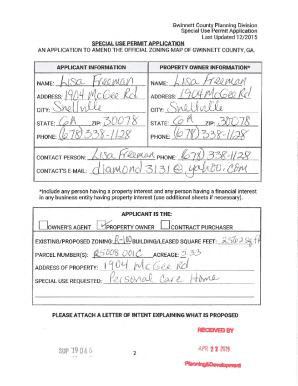 Gwinnett County Planning Division
Special Use Permit Application
Last Updated 12/2015
SPECIAL USE PERMIT APPLICATION
AN APPLICATION TO AMEND THE OFFICIAL ZONING MAP OF GWINNETT COUNTY, GA.
APPLICANT INFORMATION
PROPERTY OWNER INFORMATION*
NAME: Lisa Freeman
NAME: Lisa Freeman
ADDRESS: 1904 McGee Rd
ADDRESS: 1904 McGee Rd
CITY: Snellville
CITY: Snellville
STATE: GA ZIP: 30078
STATE: GA ZIP: 30078
PHONE: (678) 338-1128
PHONE: (678) 338-1128
CONTACT PERSON: Lisa Freeman PHONE: (678) 338-1128
CONTACT'S E-MAIL: diamond3131@yahoo.com
*Include any person having a property interest and any person having a financial interest
in any business entity having property interest (use additional sheets if necessary).
APPLICANT IS THE:
OWNER'S AGENT PROPERTY OWNER CONTRACT PURCHASER
EXISTING/PROPOSED ZONING: R-100 BUILDING/LEASED SQUARE FEET:
PARCEL NUMBER(S): R5008 001C ACREAGE: 2.33
ADDRESS OF PROPERTY: 1904 McGee Rd
SPECIAL USE REQUESTED: Personal Care Home
PLEASE ATTACH A LETTER OF INTENT EXPLAINING WHAT IS PROPOSED
RECEIVED BY
SUP '19 045
2
APR 22 2019
Planning&Development